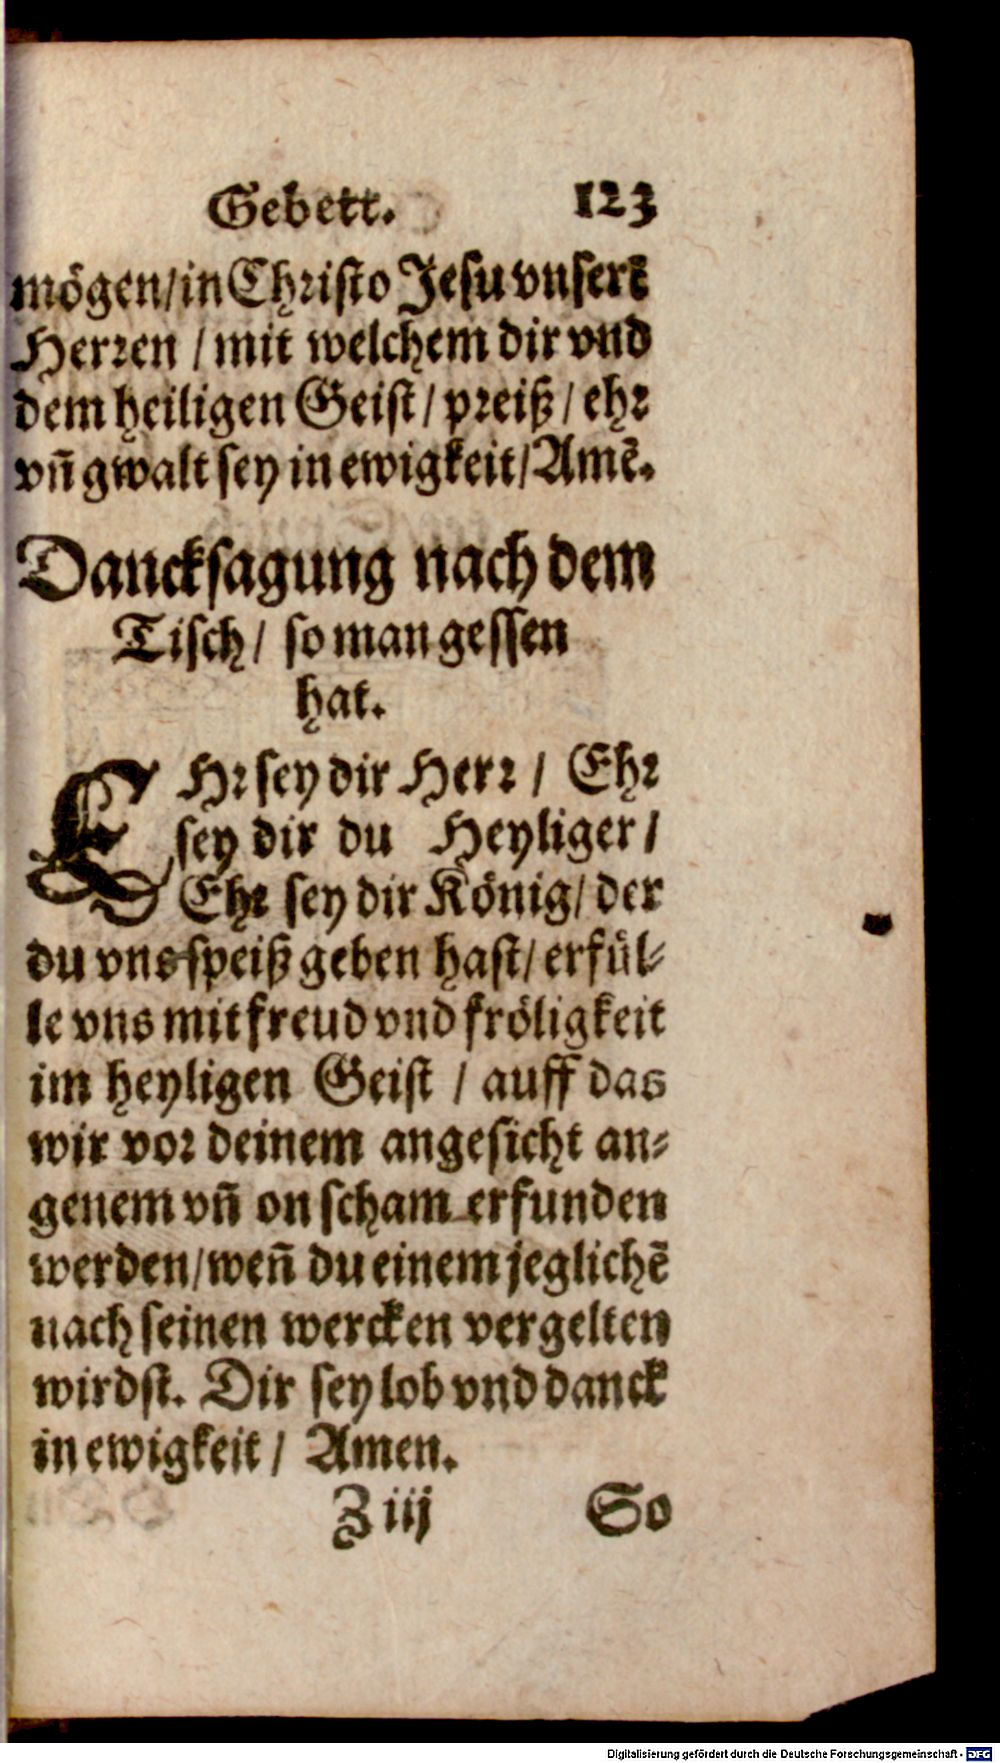 Gebett. 123
mögen/in Christo Jesu vnserē
Herren / mit welchem dir vnd
dem heiligen Geist/ preiß/ ehr
vñ gwalt sey in ewigkeit/Amē.
Dancksagung nach dem
Tisch/ so man gessen
hat.
EHr sey dir Herr / Ehr
sey dir du Heyliger/
Ehr sey dir König/ der
du vns speiß geben hast/ erfül-
le vns mit freud vnd fröligkeit
im heyligen Geist / auff das
wir vor deinem angesicht an-
genem vñ on scham erfunden
werden/weñ du einem jeglichē
nach seinen wercken vergelten
wirdst. Dir sey lob vnd danck
in ewigkeit/ Amen.
Z iij So
Digitalisierung gefördert durch die Deutsche Forschungsgemeinschaft - DFG